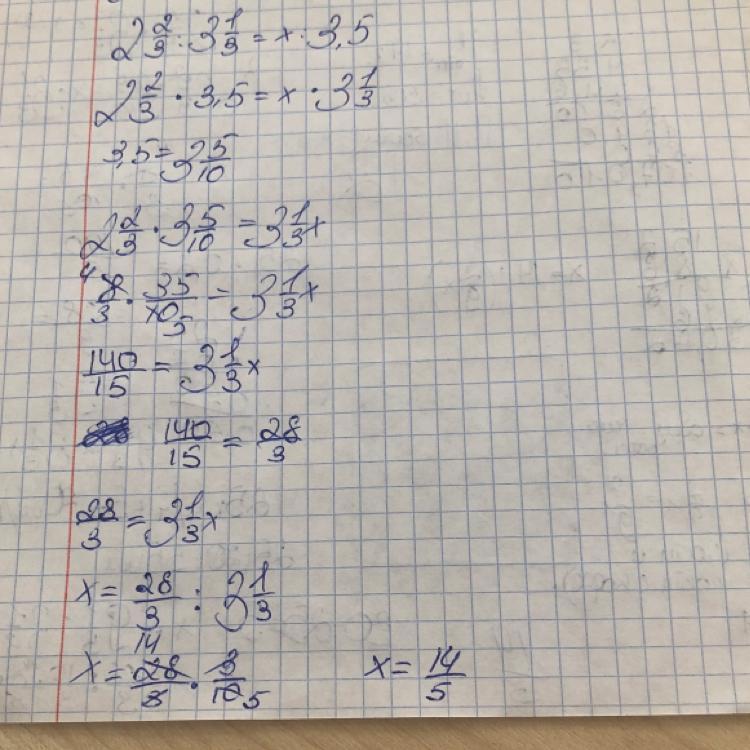 2 2/3 · 3 1/3 = x · 3,5
2 2/3 · 3,5 = x · 3 1/3
3,5 = 3 5/10
2 2/3 · 3 5/10 = 3 1/3 x
4 8/3 · 35/10 5 = 3 1/3 x
140/15 = 3 1/3 x
140/15 = 28/3
28/3 = 3 1/3 x
x = 28/3 : 3 1/3
x = 14 28/3 · 3/10 5 x = 14/5